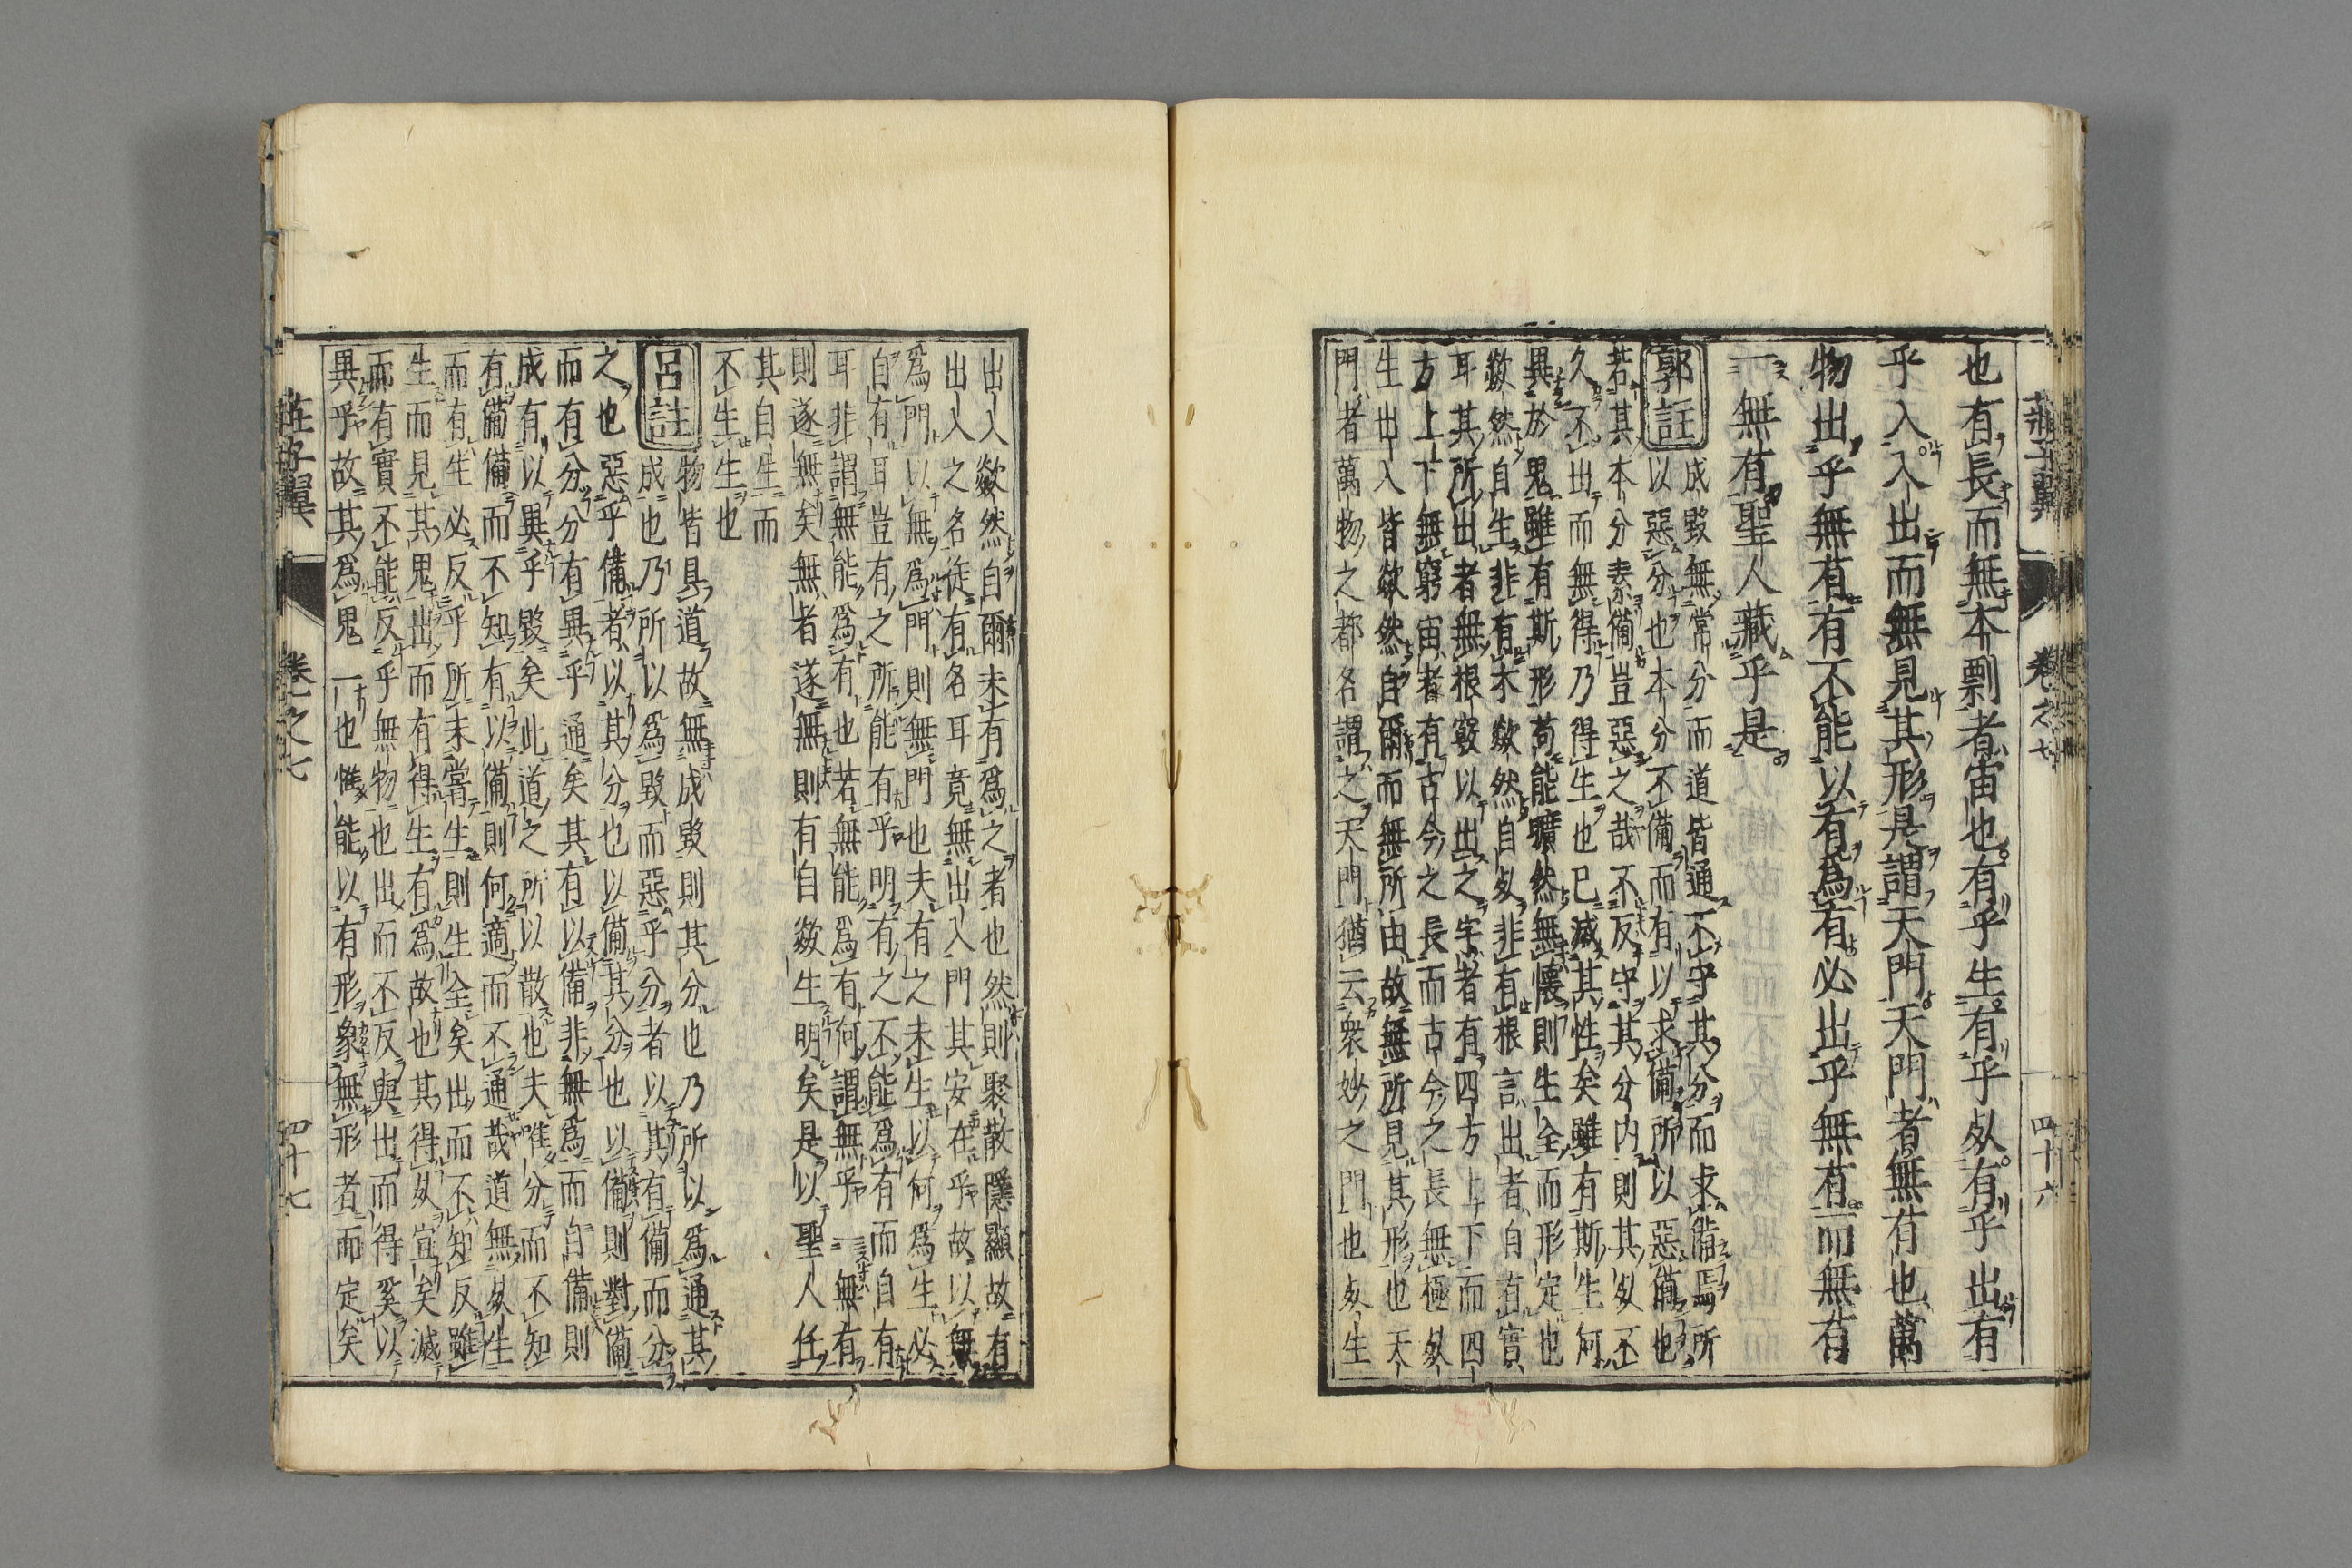 莊子翼 卷之七 四十六
也有長而無本剽者宙也有乎生有乎死有乎出有
乎入入出而無見其形是謂天門天門者無有也萬
物出乎無有有不能以有爲有必出乎無有而無有
一無有聖人藏乎是
郭註 成毀無常分而道皆通不守其分而求備焉所
以惡分也本分不備而有以求備所以惡備也
若其本分素備豈惡之哉不反守其分内則其死不
久不出而無得乃得生也已滅其性矣雖有斯生何
異於鬼雖有斯形苟能曠然無懷則生全而形定也
欻然自生非有本欻然自死非有根言出者自有實
耳其所出者無根竅以出之宇者有四方上下而四
方上下無窮宙者有古今之長而古今之長無極死
生出入皆欻然自爾而無所由故無所見其形也天
門者萬物之都名謂之天門猶云衆妙之門也死生
出入欻然自爾未有爲之者也然則聚散隱顯故有
出入之名徒有名耳竟無出入門其安在乎故以無
爲門以無爲門則無門也夫有之未生以何爲生必
自有耳豈有之所能有乎明有之不能爲有而自有
耳非謂無能爲有也若無能爲有何謂無乎一無有
則遂無矣無者遂無則有自欻生明矣是以聖人任
其自生而
不生生也
呂註 物皆具道故無成毀則其分也乃所以爲通其
成也乃所以爲毀而惡乎分者以其有備而分
之也惡乎備者以其分也以備其分也以備則對備
而有分分有異乎通矣其有以備非無爲而自備則
成有以異乎毀矣此道之所以散也夫唯分而不知
有備備而不知有以備則何適而不通哉道無死生
而有生必反乎所未嘗生則生全矣出而不知反雖
生而見其鬼出而有得生有爲故也其得死宜矣滅
而有實不能反乎無物也出而不反與出而得奚以
異乎故其爲鬼一也惟能以有形象無形者而定矣
莊子翼 卷之七 四十七